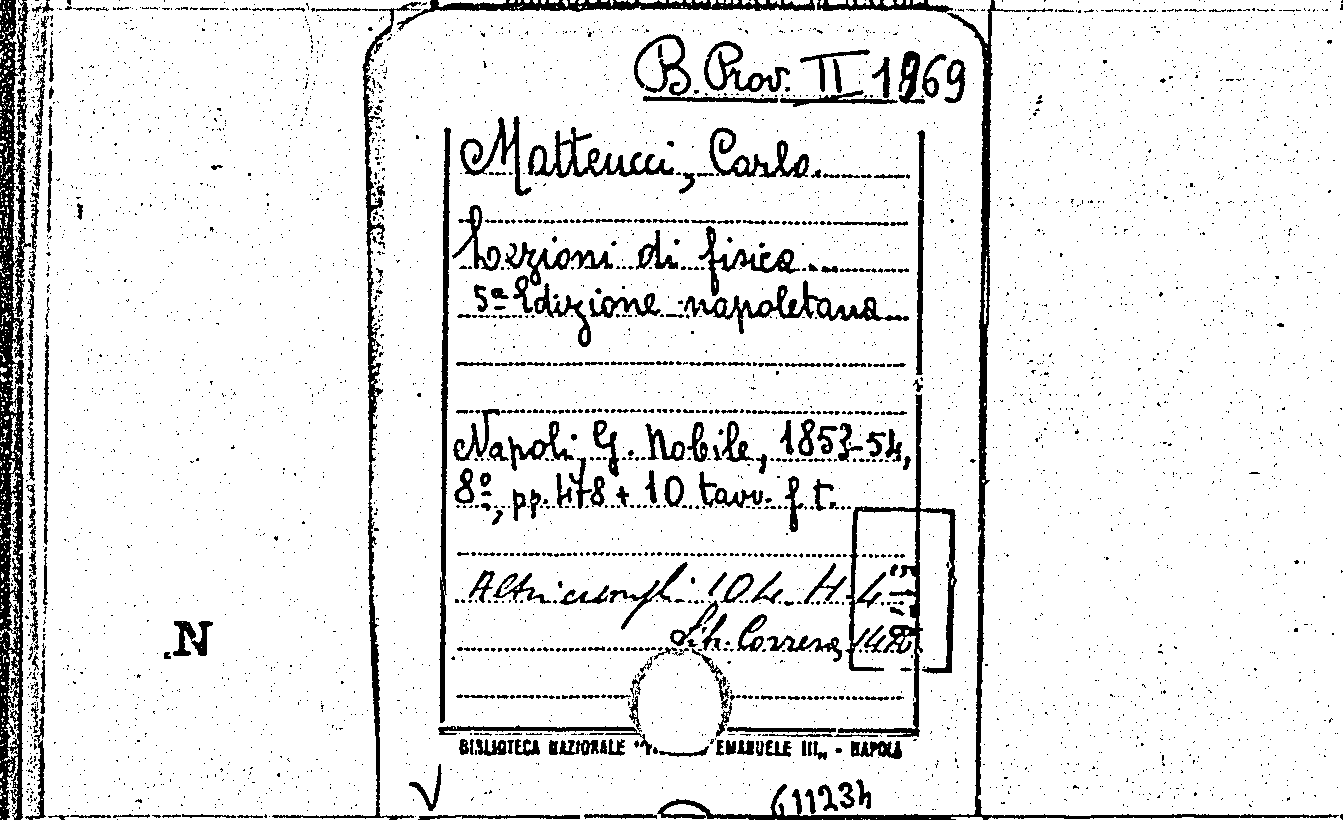 B. Prov. II 1969
Matteucci, Carlo.
Lezioni di fisica...
5ª Edizione napoletana...
Napoli, G. Nobile, 1853-54,
8º, pp. 478 + 10 tavv. f. t.
Altri esempl: 104. H.
Lib. Correra,
N
BIBLIOTECA NAZIONALE " EMANUELE III„ - NAPOLI
611234